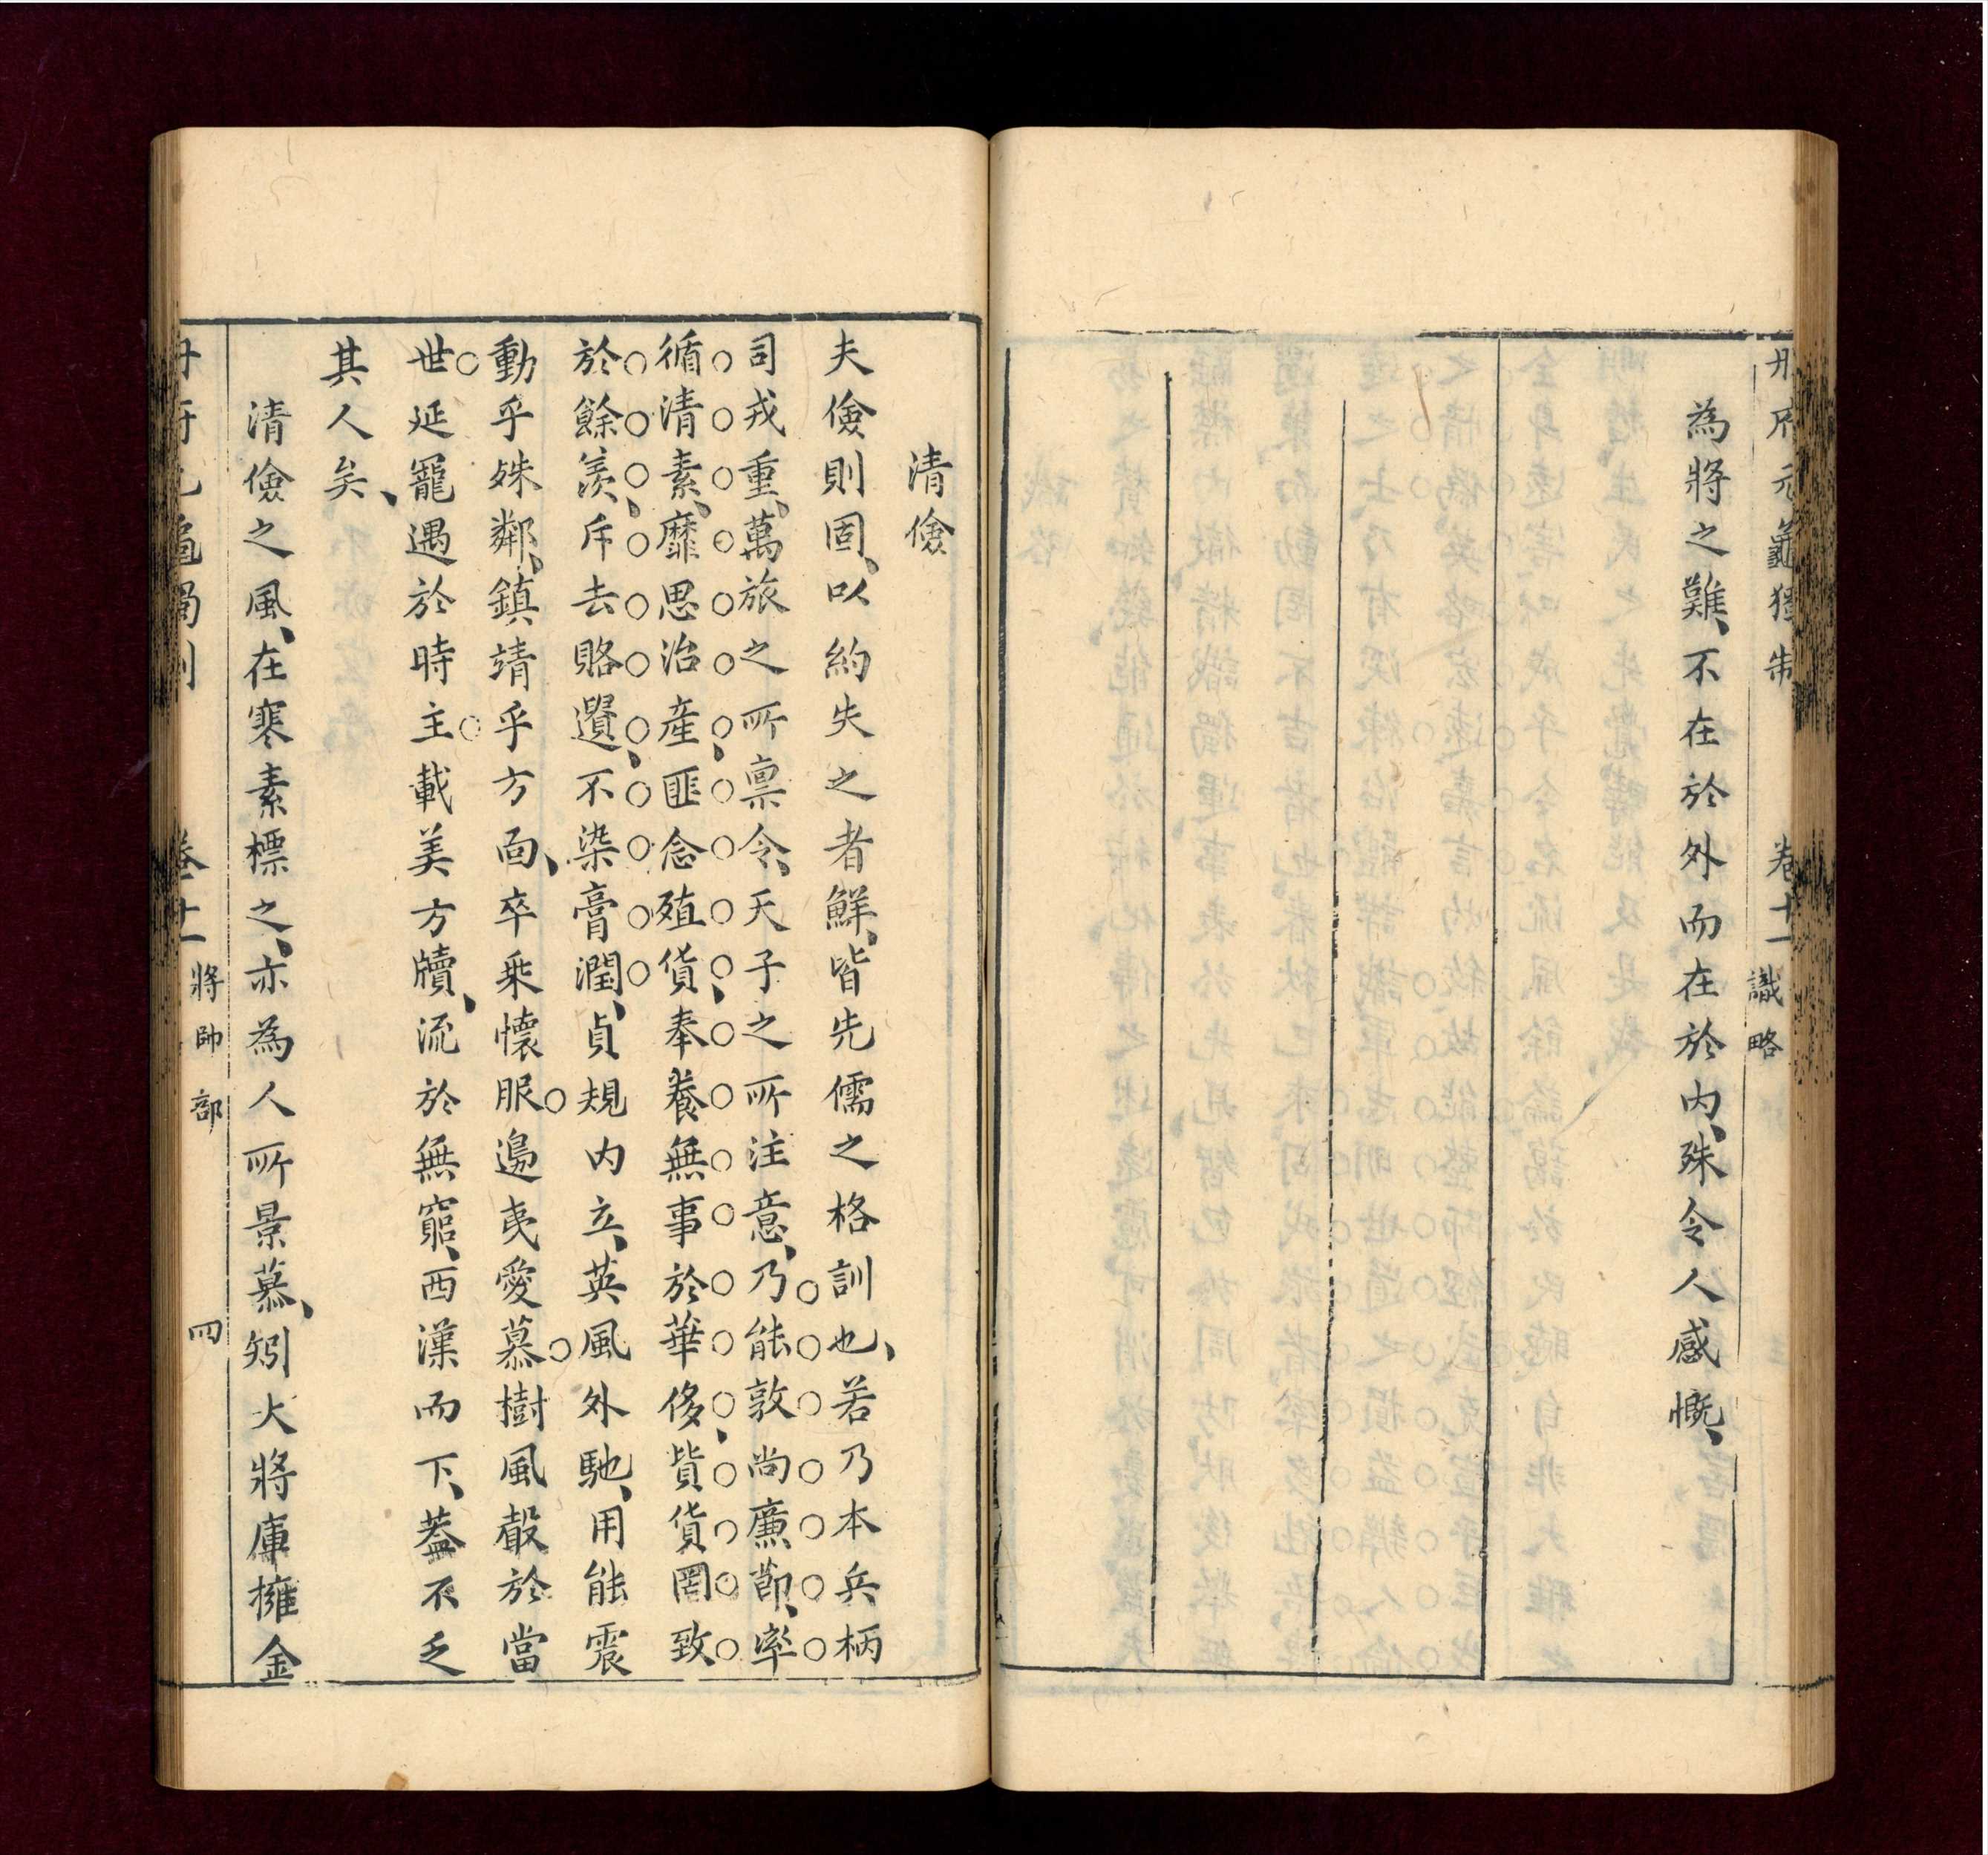 冊府元龜獨制 卷十一 識略
為將之難、不在於外而在於內、殊令人感慨、
清儉
夫儉則固、以約失之者鮮、皆先儒之格訓也、若乃本兵柄
司戎重、萬旅之所稟令、天子之所注意、乃能敦尚廉節、率
循清素、靡思治產匪念殖貨奉養無事於華侈、貲貨罔致
於餘羨、斥去賂遺、不染膏潤、貞規內立、英風外馳、用能震
動乎殊鄰、鎮靖乎方面、卒乘懷服邊夷愛慕樹風聲於當
世延寵遇於時主載美方牘、流於無窮、西漢而下、蓋不乏
其人矣、
清儉之風、在寒素標之、亦為人所景慕、矧大將庫擁金
冊府元龜獨制 卷十一 將帥部 四